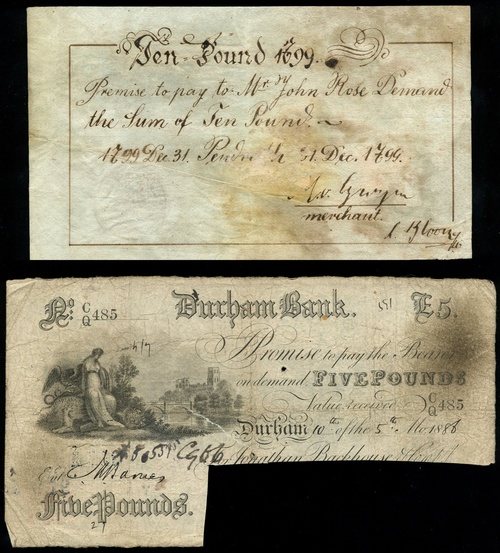 Ten Pound 1799.
Promise to pay to Mr John Rose Demand
the Sum of Ten Pound
1799 Dec. 31. 31. Dec. 1799.
merchant.
No: C/Q 485 Durham Bank. £5.
I Promise to pay the Bearer
on demand FIVE POUNDS
Value received C/Q 485
Durham 10th of the 5th Mo 1886
For Jonathan Backhouse & Co
Entd
Five Pounds.